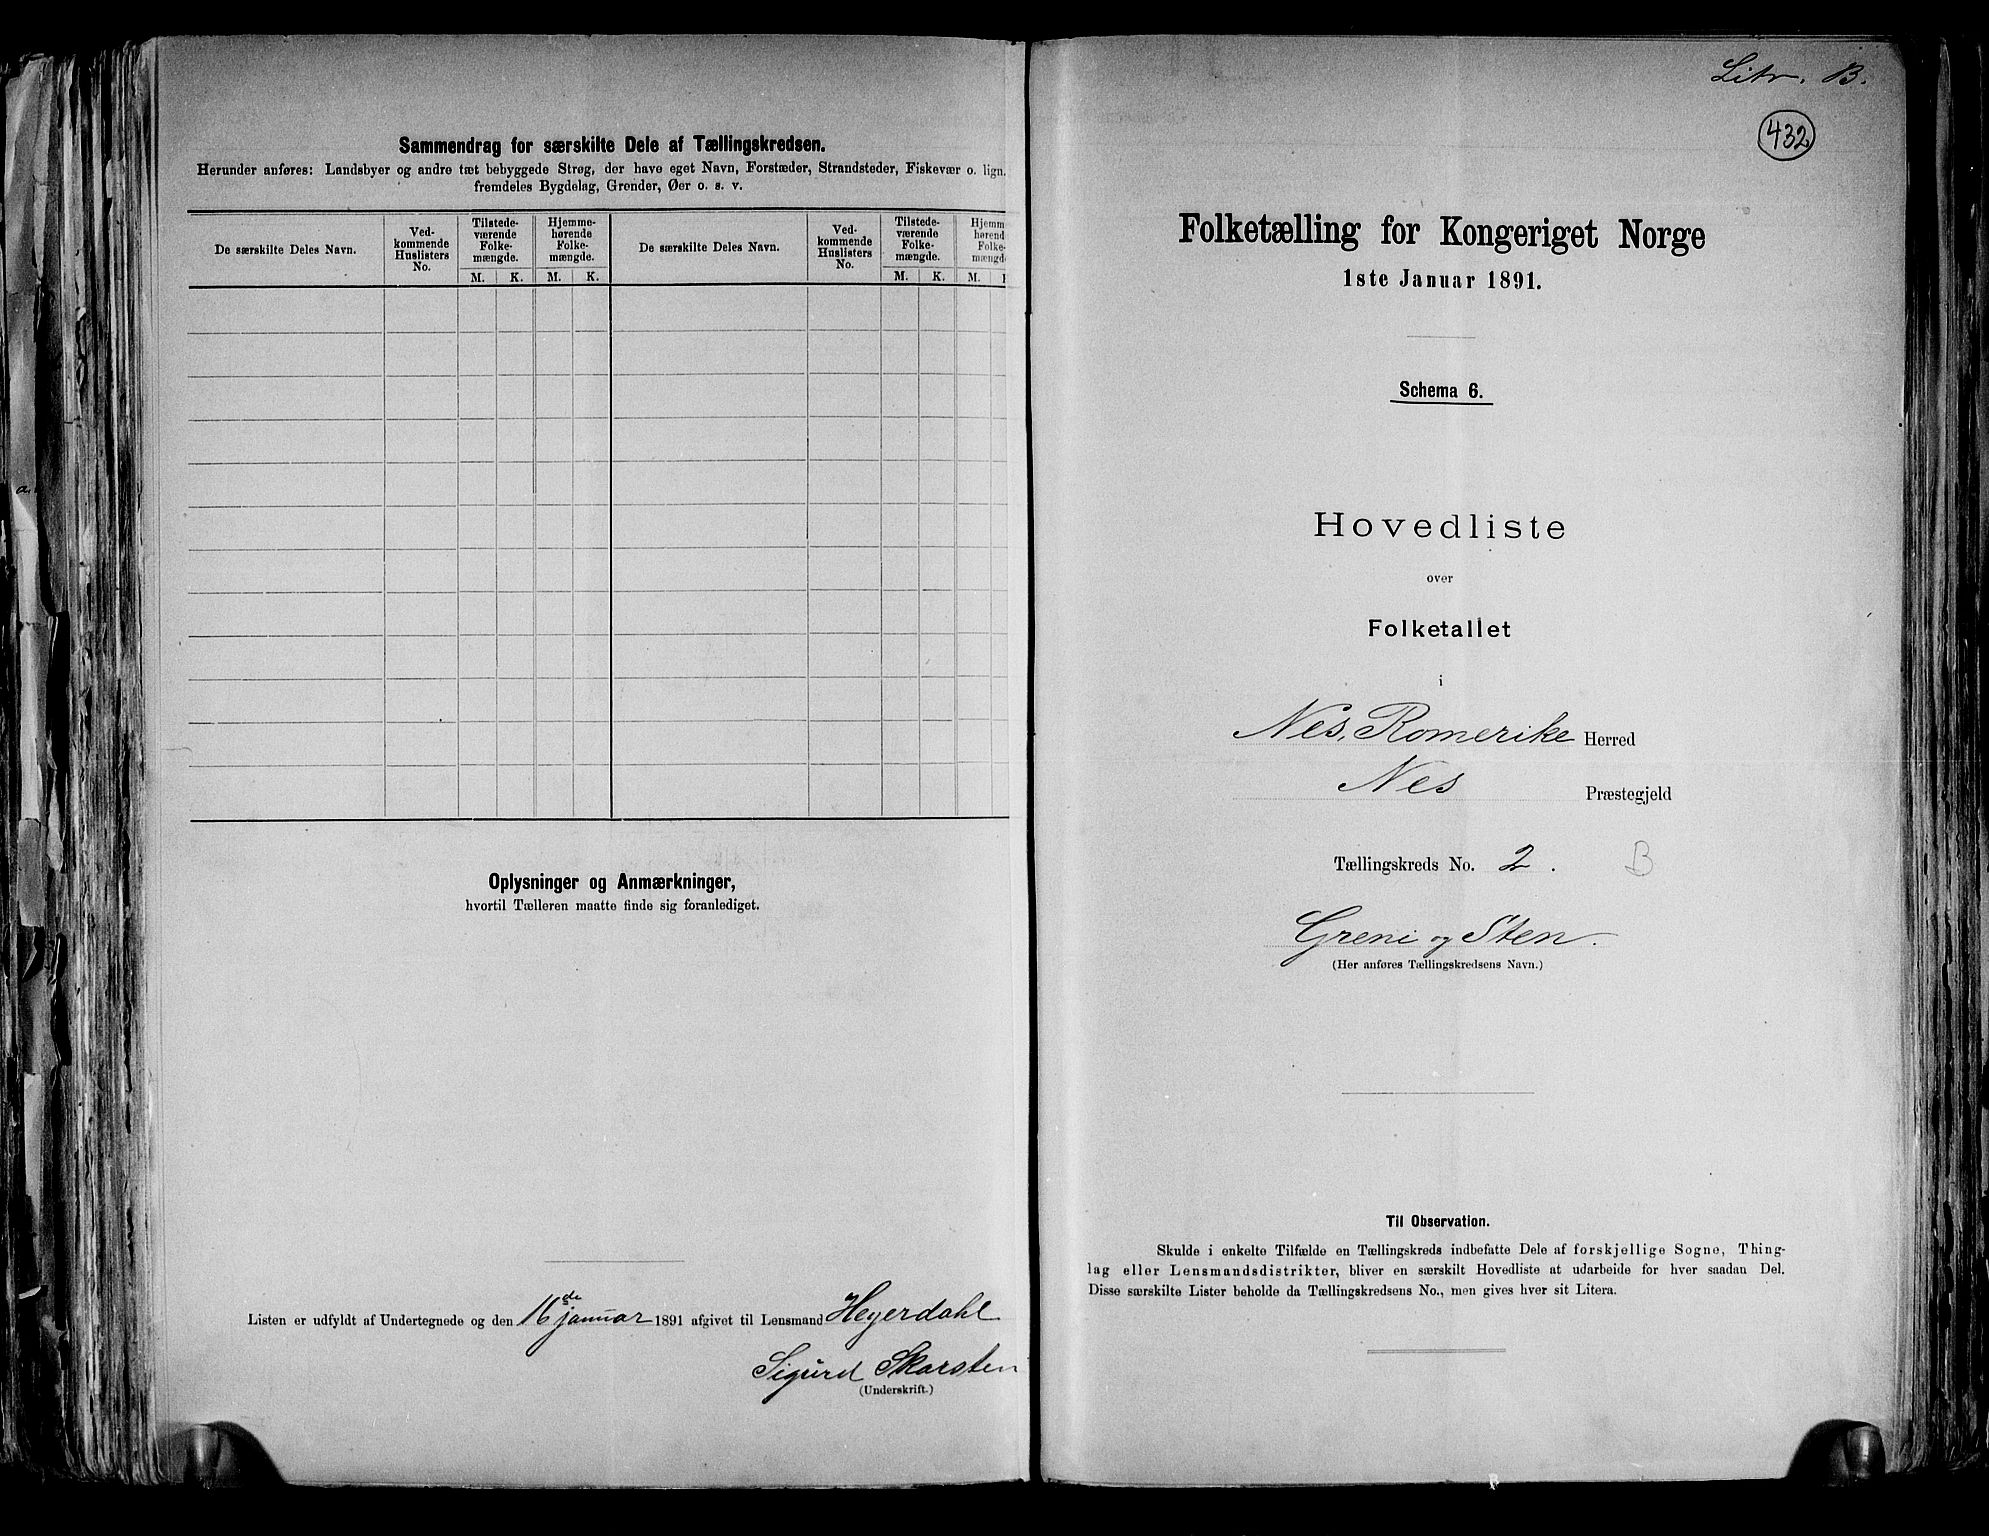 Sammendrag for særskilte Dele af Tællingskredsen.
Herunder anføres: Landsbyer og andre tæt bebyggede Strøg, der have eget Navn, Forstæder, Strandsteder, Fiskevær o. lign.
fremdeles Bygdelag, Grender, Øer o. s. v.
De særskilte Deles Navn.
Ved-
kommende
Huslisters
No.
Tilstede-
værende
Folke-
mængde.
Hjemme-
hørende
Folke-
mængde.
De særskilte Deles Navn.
Ved-
kommende
Huslisters
No.
Tilstede-
værende
Folke-
mængde.
Hjemm
hørend
Folke-
mængd
M. K. M. K. M. K. M.
Oplysninger og Anmærkninger,
hvortil Tælleren maatte finde sig foranlediget.
Listen er udfyldt af Undertegnede og den 16de januar 1891 afgivet til Lensmand Heyerdahl
Sigurd Skarsten
(Underskrift.)
Litr. B.
432
Folketælling for Kongeriget Norge
1ste Januar 1891.
Schema 6.
Hovedliste
over
Folketallet
i
Nes, Romerike Herred
Nes Præstegjeld
Tællingskreds No. 2. B
Greni og Sten.
(Her anføres Tællingskredsens Navn.)
Til Observation.
Skulde i enkelte Tilfælde en Tællingskreds indbefatte Dele af forskjellige Sogne, Thing-
lag eller Lensmandsdistrikter, bliver en særskilt Hovedliste at udarbeide for hver saadan Del.
Disse særskilte Lister beholde da Tællingskredsens No., men gives hver sit Litera.